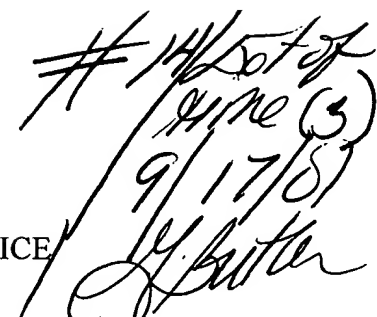 # 14/Ext of
time (3)
9/17/01
ICE
Butler